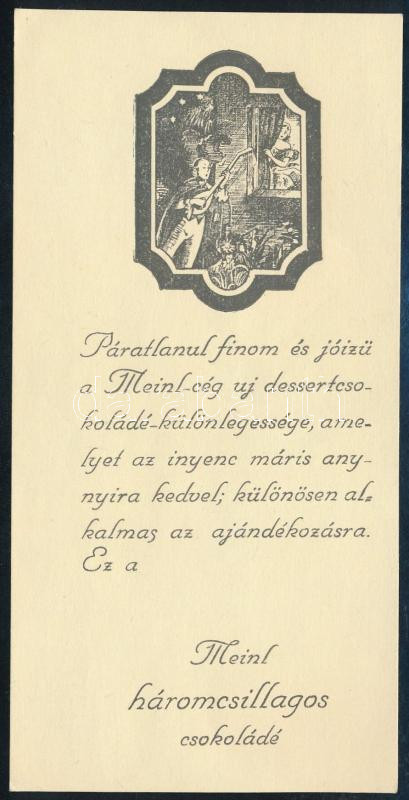 Páratlanul finom és jóizü
a Meinl-cég uj dessertcso-
koládé-különlegessége, ame-
lyet az inyenc máris any-
nyira kedvel; különösen al-
kalmas az ajándékozásra.
Ez a
Meinl
háromcsillagos
csokoládé